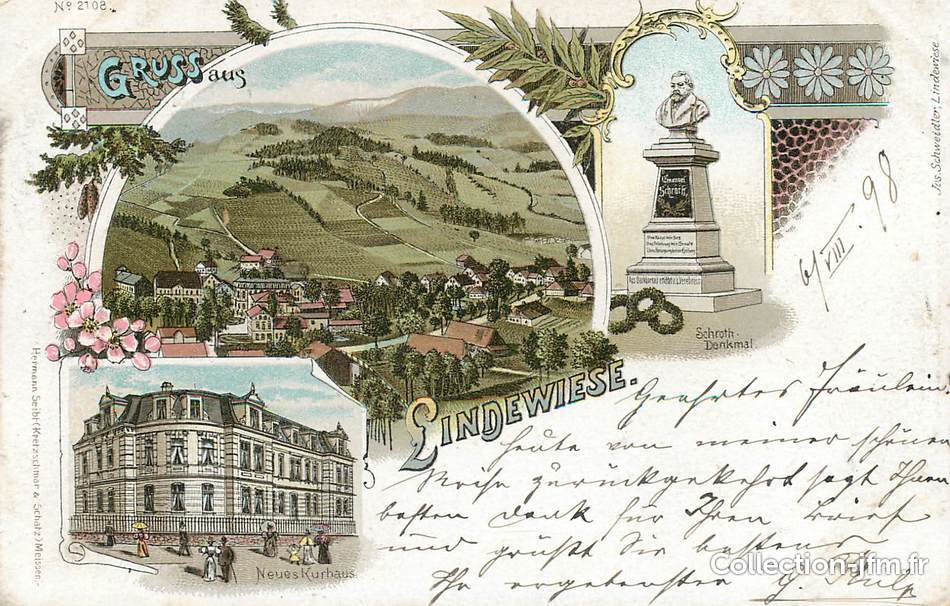 No 2108.
GRUSS aus
LINDEWIESE.
Emanuel
Schroth
Schroth-
Denkmal.
Jos. Schweidler, Lindewiese
6/VIII. 98
Neues Kurhaus.
Hermann Seibt (Kretzschmar & Schatz) Meissen.
Geehrtes Fräulein
Heute von meiner schönen
Reise zurückgekehrt sagt Ihnen
besten Dank für Ihren Brief
und grüßt Sie bestens
Ihr ergebenster
Collection-jfm.fr